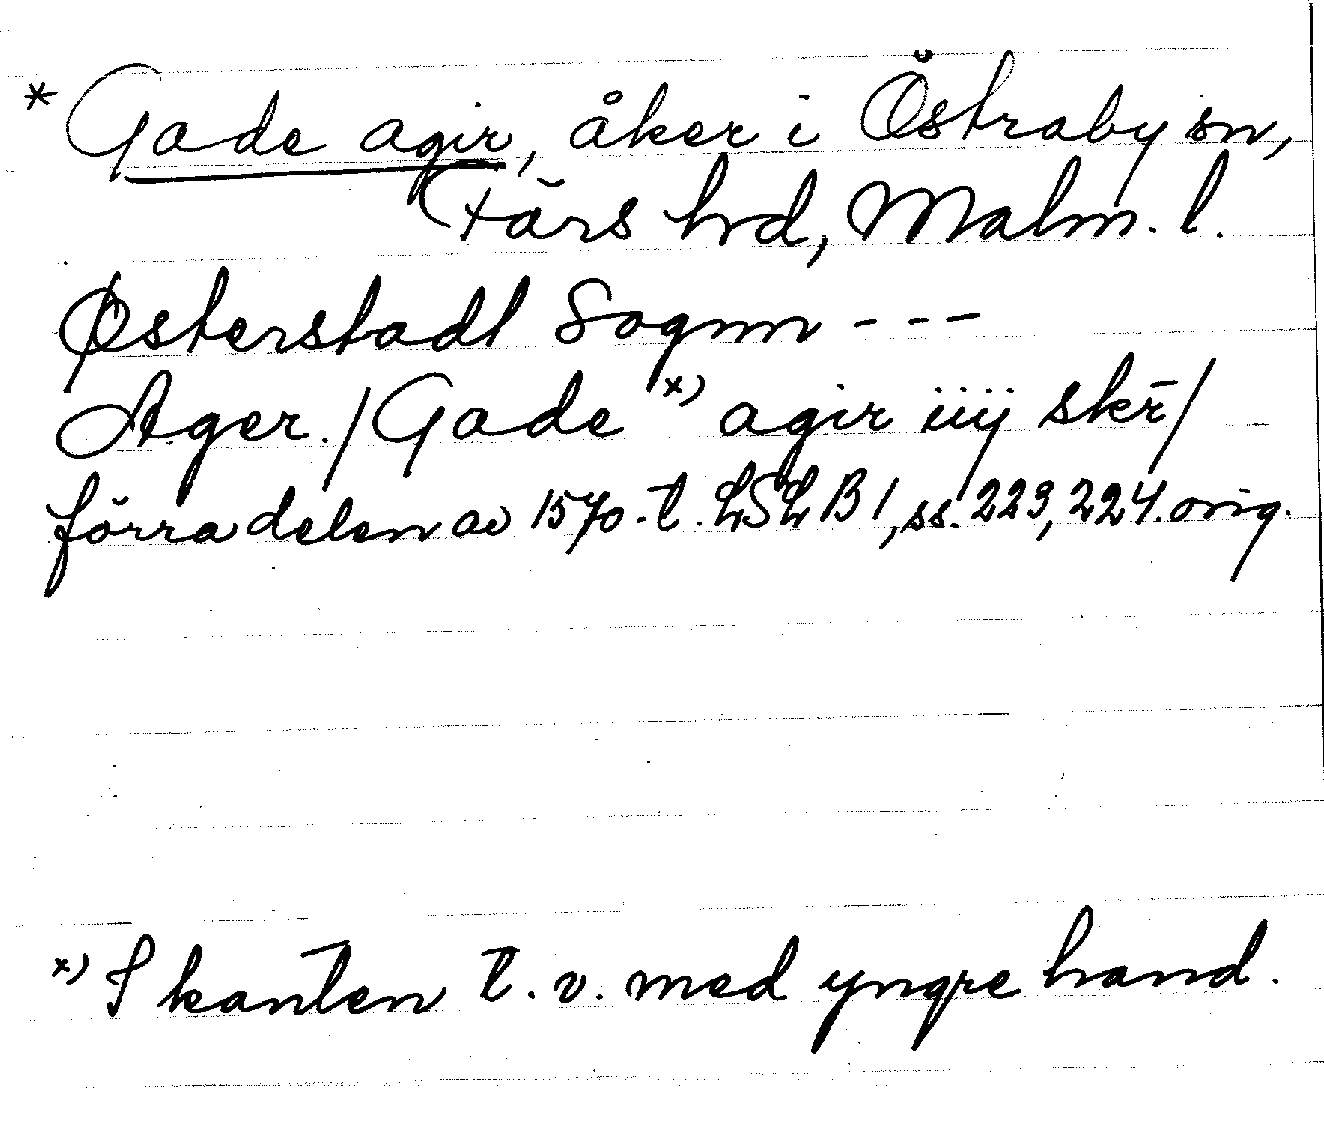 * Gade agir, åker i Östraby sn,
Färs hd, Malm. l.
Østerstadt Sognn - - -
Ager. / Gade x) agir iiij skr̄ /
förra delen av 1570-t. LSL B 1, ss. 223, 224. orig.
x) I kanten t. v. med yngre hand.